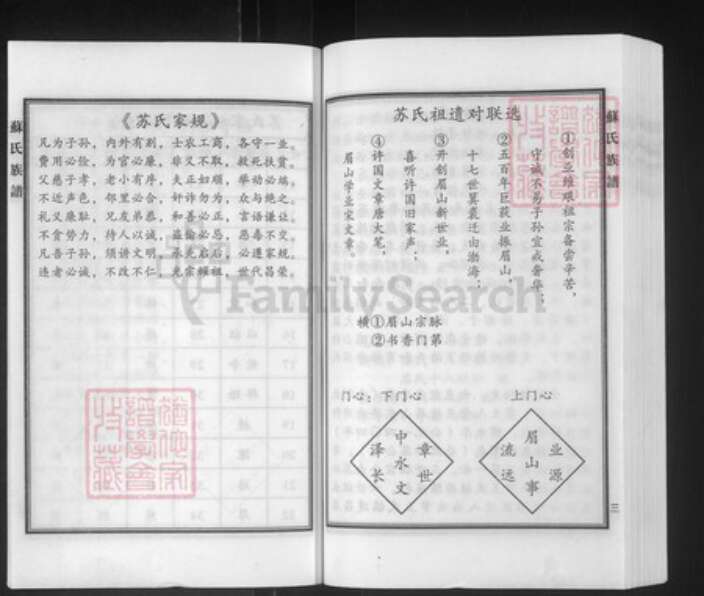 蘇氏族譜
苏氏祖遗对联选
①创业维艰祖宗备尝辛苦，
守诚不易子孙宜戒奢华；
②五百年巨获业振眉山，
十七世箕裘迁由渤海；
③开创眉山新世业，
喜听许国旧家声；
④许国文章唐大笔，
眉山学业宋文章。
横①眉山宗脉
②书香门第
门心：下门心
上门心
眉山事
业源
流远
中水文
章世
泽长
三
《苏氏家规》
凡为子孙，内外有别，士农工商，各守一业。
费用必俭，为官必廉，非义不取，救死扶贫。
父慈子孝，老小有序，夫正妇顺，举动必端。
不近声色，邻里必合，奸诈勿为，众与绝之。
礼义廉耻，兄友弟恭，和善必正，言语谦让。
不贪势力，待人以诚，盗偷必忌，恶毒不交。
凡吾子孙，须讲文明，承先启后，必遵家规。
违者必诫，不改不仁，光宗耀祖，世代昌荣。
蘇氏族譜
FamilySearch